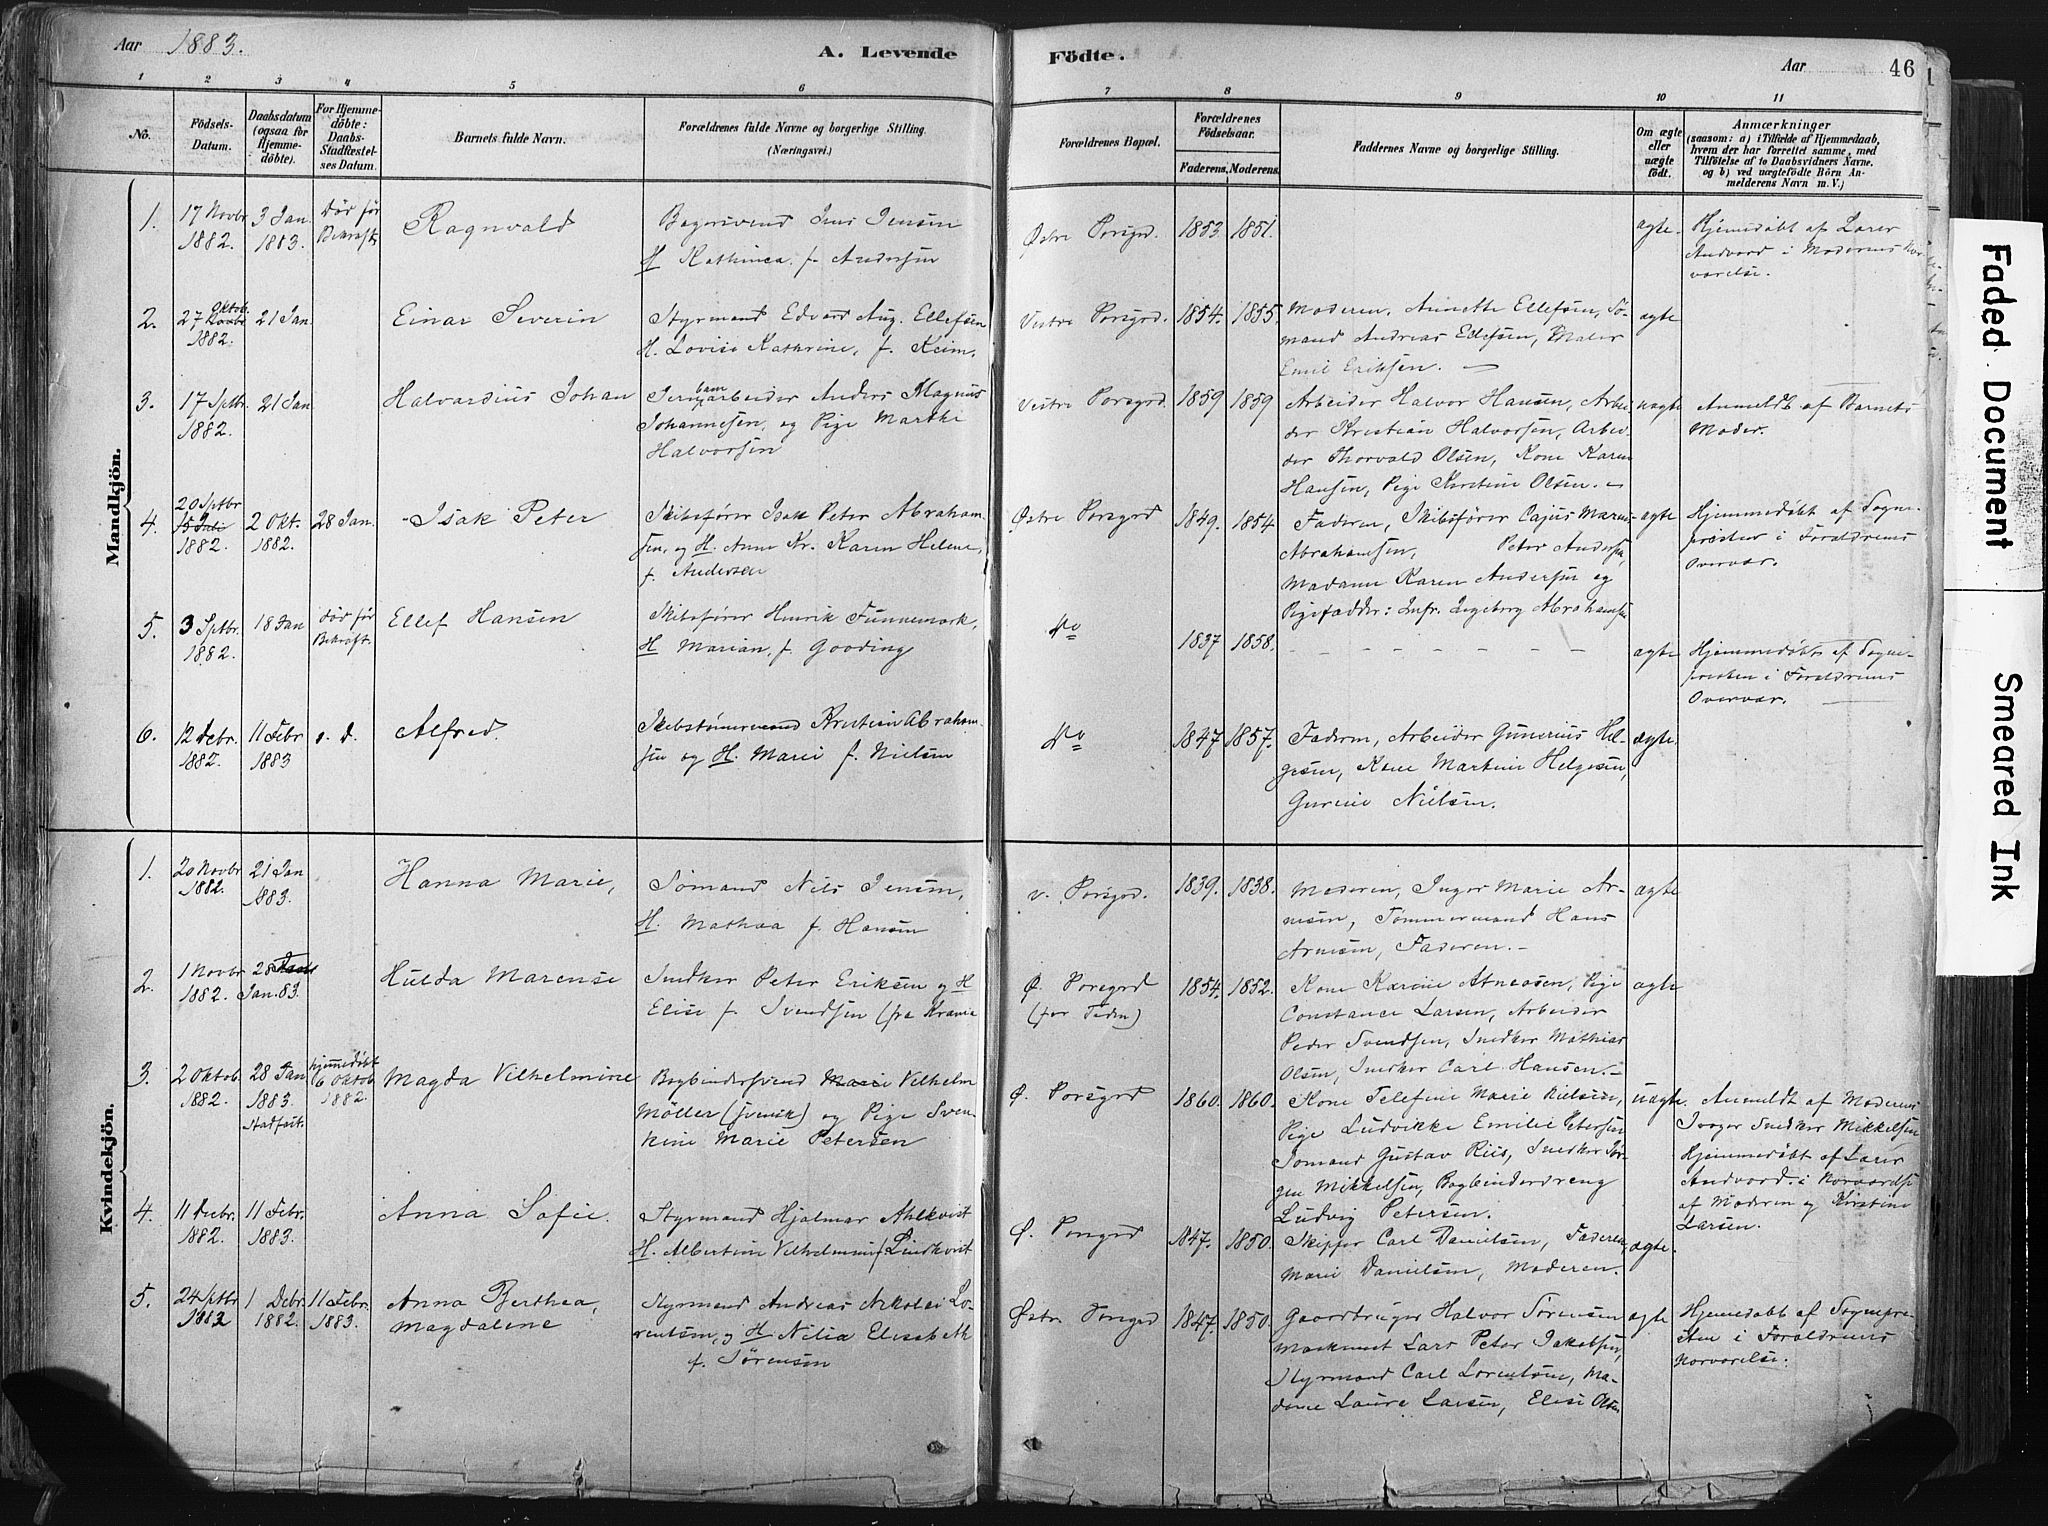 Aar 1883.
A. Levende
1 2 3 4 5 6
No.
Födsels-
Datum.
Daabsdatum
(ogsaa for
Hjemme-
döbte).
For Hjemme-
döbte:
Daabs-
Stadfæstel-
ses Datum.
Barnets fulde Navn.
Forældrenes fulde Navne og borgerlige Stilling.
(Næringsvei.)
Mandkjön.
1.
17 Novbr
1882.
3 Jan.
1883.
Död før
Bekræft.
Ragnvald
Bagersvend Jens Jensen
H Kathinca f. Andersen
2.
27 Oktob. Novbr
1882.
21 Jan.
Einar Severin
Styrmand Edvard Aug. Ellefsen
H. Lovise Kathrine, f. Keim.
3.
17 Sptbr
1882.
21 Jan
Halvardius Johan
Jernbanearbeider Anders Magnus
Johannesen, og Pige Marthe
Halvorsen
4.
20 Sptbr
15 Juli
1882.
2 Okt.
1882.
28 Jan.
Isak Peter
Skibsfører Isak Peter Abraham-
sen, og H. Anne Kr. Karen Helene,
f. Andersen
5.
3 Sptbr.
1882.
18 Jan
död før
Bekræft.
Ellef Hansen
Skibsfører Henrik Funnemark,
H Marian, f. Gooding
6.
12 Debr.
1882.
11 Febr
1883
s. D.
Alfred.
Skibstømmermand Kristian Abraham-
sen og H. Marie f. Nielsen
Kvindekjön.
1.
20 Novbr
1882.
21 Jan
1883.
Hanna Marie,
Sømand Nils Jensen,
H. Mathea f. Hansen
2.
1 Novbr
1882.
28
Jan. 83.
Hulda Marense
Snedker Peter Eriksen og H
Elise f. Svendsen (fra
3.
2 Oktob.
1882.
28 Jan
1883.
Stadfæst.
hjemmedöbt
6 Oktob
1882.
Magda Vilhelmine
Bogbindersvend Marie Vilhelm
Möller (svensk) og Pige Sven-
kine Marie Petersen
4.
11 Debr.
1882.
11 Febr.
1883.
Anna Sofie.
Styrmand Hjalmar Ahlkvist
H. Albertine Vilhelmine f Lindkvist
5.
24 Sptbr
1882
1 Debr.
1882.
11 Febr.
1883.
Anna Berthea,
Magdalene
Styrmand Andreas Nikolai Lo-
rentsen, og H. Nilia Elisabeth
f. Sørensen
Födte.
Aar 46
7 8 9 10 11
Forældrenes Bopæl.
Forældrenes
Födselsaar.
Faderens. Moderens.
Faddernes Navne og borgerlige Stilling.
Om ægte
eller
uægte
födt.
Anmærkninger
(saasom: a) i Tilfælde af Hjemmedaab,
hvem der har forrettet samme, med
Tilföielse af to Daabsvidners Navne.
og b) ved uægtefödte Börn An-
melderens Navn m. V.)
Østre Porsgrd.
1853. 1851.
ægte.
Hjemmedøbt af Lærer
Andvord i Moderens Nær
værelse.
Vestre Porsgrd.
1854. 1855.
Moderen, Annette Ellefsen, Sø-
mand Andreas Ellefsen, Maler
Emil Eriksen. —
ægte
Vestre Porsgrd.
1859 1859
Arbeider Halvor Hansen, Arbei-
der Kristian Halvorsen, Arbei-
der Thorvald Olsen, Kone Karen
Hansen, Pige Kirstine Olsen. —
uægte
Anmeldt af Barnets
Moder.
Østre Porsgrd
1849. 1854
Faderen, Skibsfører Cajus Marius
Abrahamsen, Peter Andersen,
Madame Karen Andersen og
Pigefadder: Jnfr. Ingeborg Abrahamsen
ægte
Hjemmedøbt af Sogne-
præsten i Forældrenes
Overvær.
do
1837 1858.
ægte
Hjemmedøbt af Sogne-
præsten i Forældrenes
Overvær.
do
1847 1857.
Faderen, Arbeider Gunerius Hel-
gesen, Kone Martine Helgesen,
Gurine Nielsen.
ægte.
v. Porsgrd.
1839. 1838.
Moderen, Inger Marie Ar-
nesen, Tømmermand Hans
Arnesen, Faderen. —
ægte
Ø. Porsgrd
(for Tiden)
1854. 1852.
Kone Karine Atneosen, Pige
Constance Larsen, Arbeider
Peder Svendsen, Snedker Mathias
Olsen, Snedker Carl Hansen. —
ægte
Ø. Porsgrd
1860. 1860.
Kone Telefine Marie Nielsen,
Pige Ludvikke Emilie Petersen
Sømand Gustav Riis, Snedker Jør-
gen Mikkelsen, Bogbinderdreng
Ludvig Petersen.
uægte.
Anmeldt af Moderens
Svoger Snedker Mikkelsen
Hjemmedøbt af Lærer
Andvord i Nærværelse
af Moderen og Kristine
Larsen.
Ø. Porsgrd
1847. 1850.
Skipper Carl Danielsen, Faderen,
Marie Danielsen, Moderen.
ægte.
Østre Porsgrd
1847. 1850.
Gaardbruger Halvor Sørensen
Maskinist Lars Peter Jakobsen,
Styrmand Carl Lorentsen, Ma-
dame Laura Larsen, Elise Olsen
ægte
Hjemmedøbt af Sognepræ-
sten i Forældrenes
Nærværelse.
Faded Document
Smeared Ink